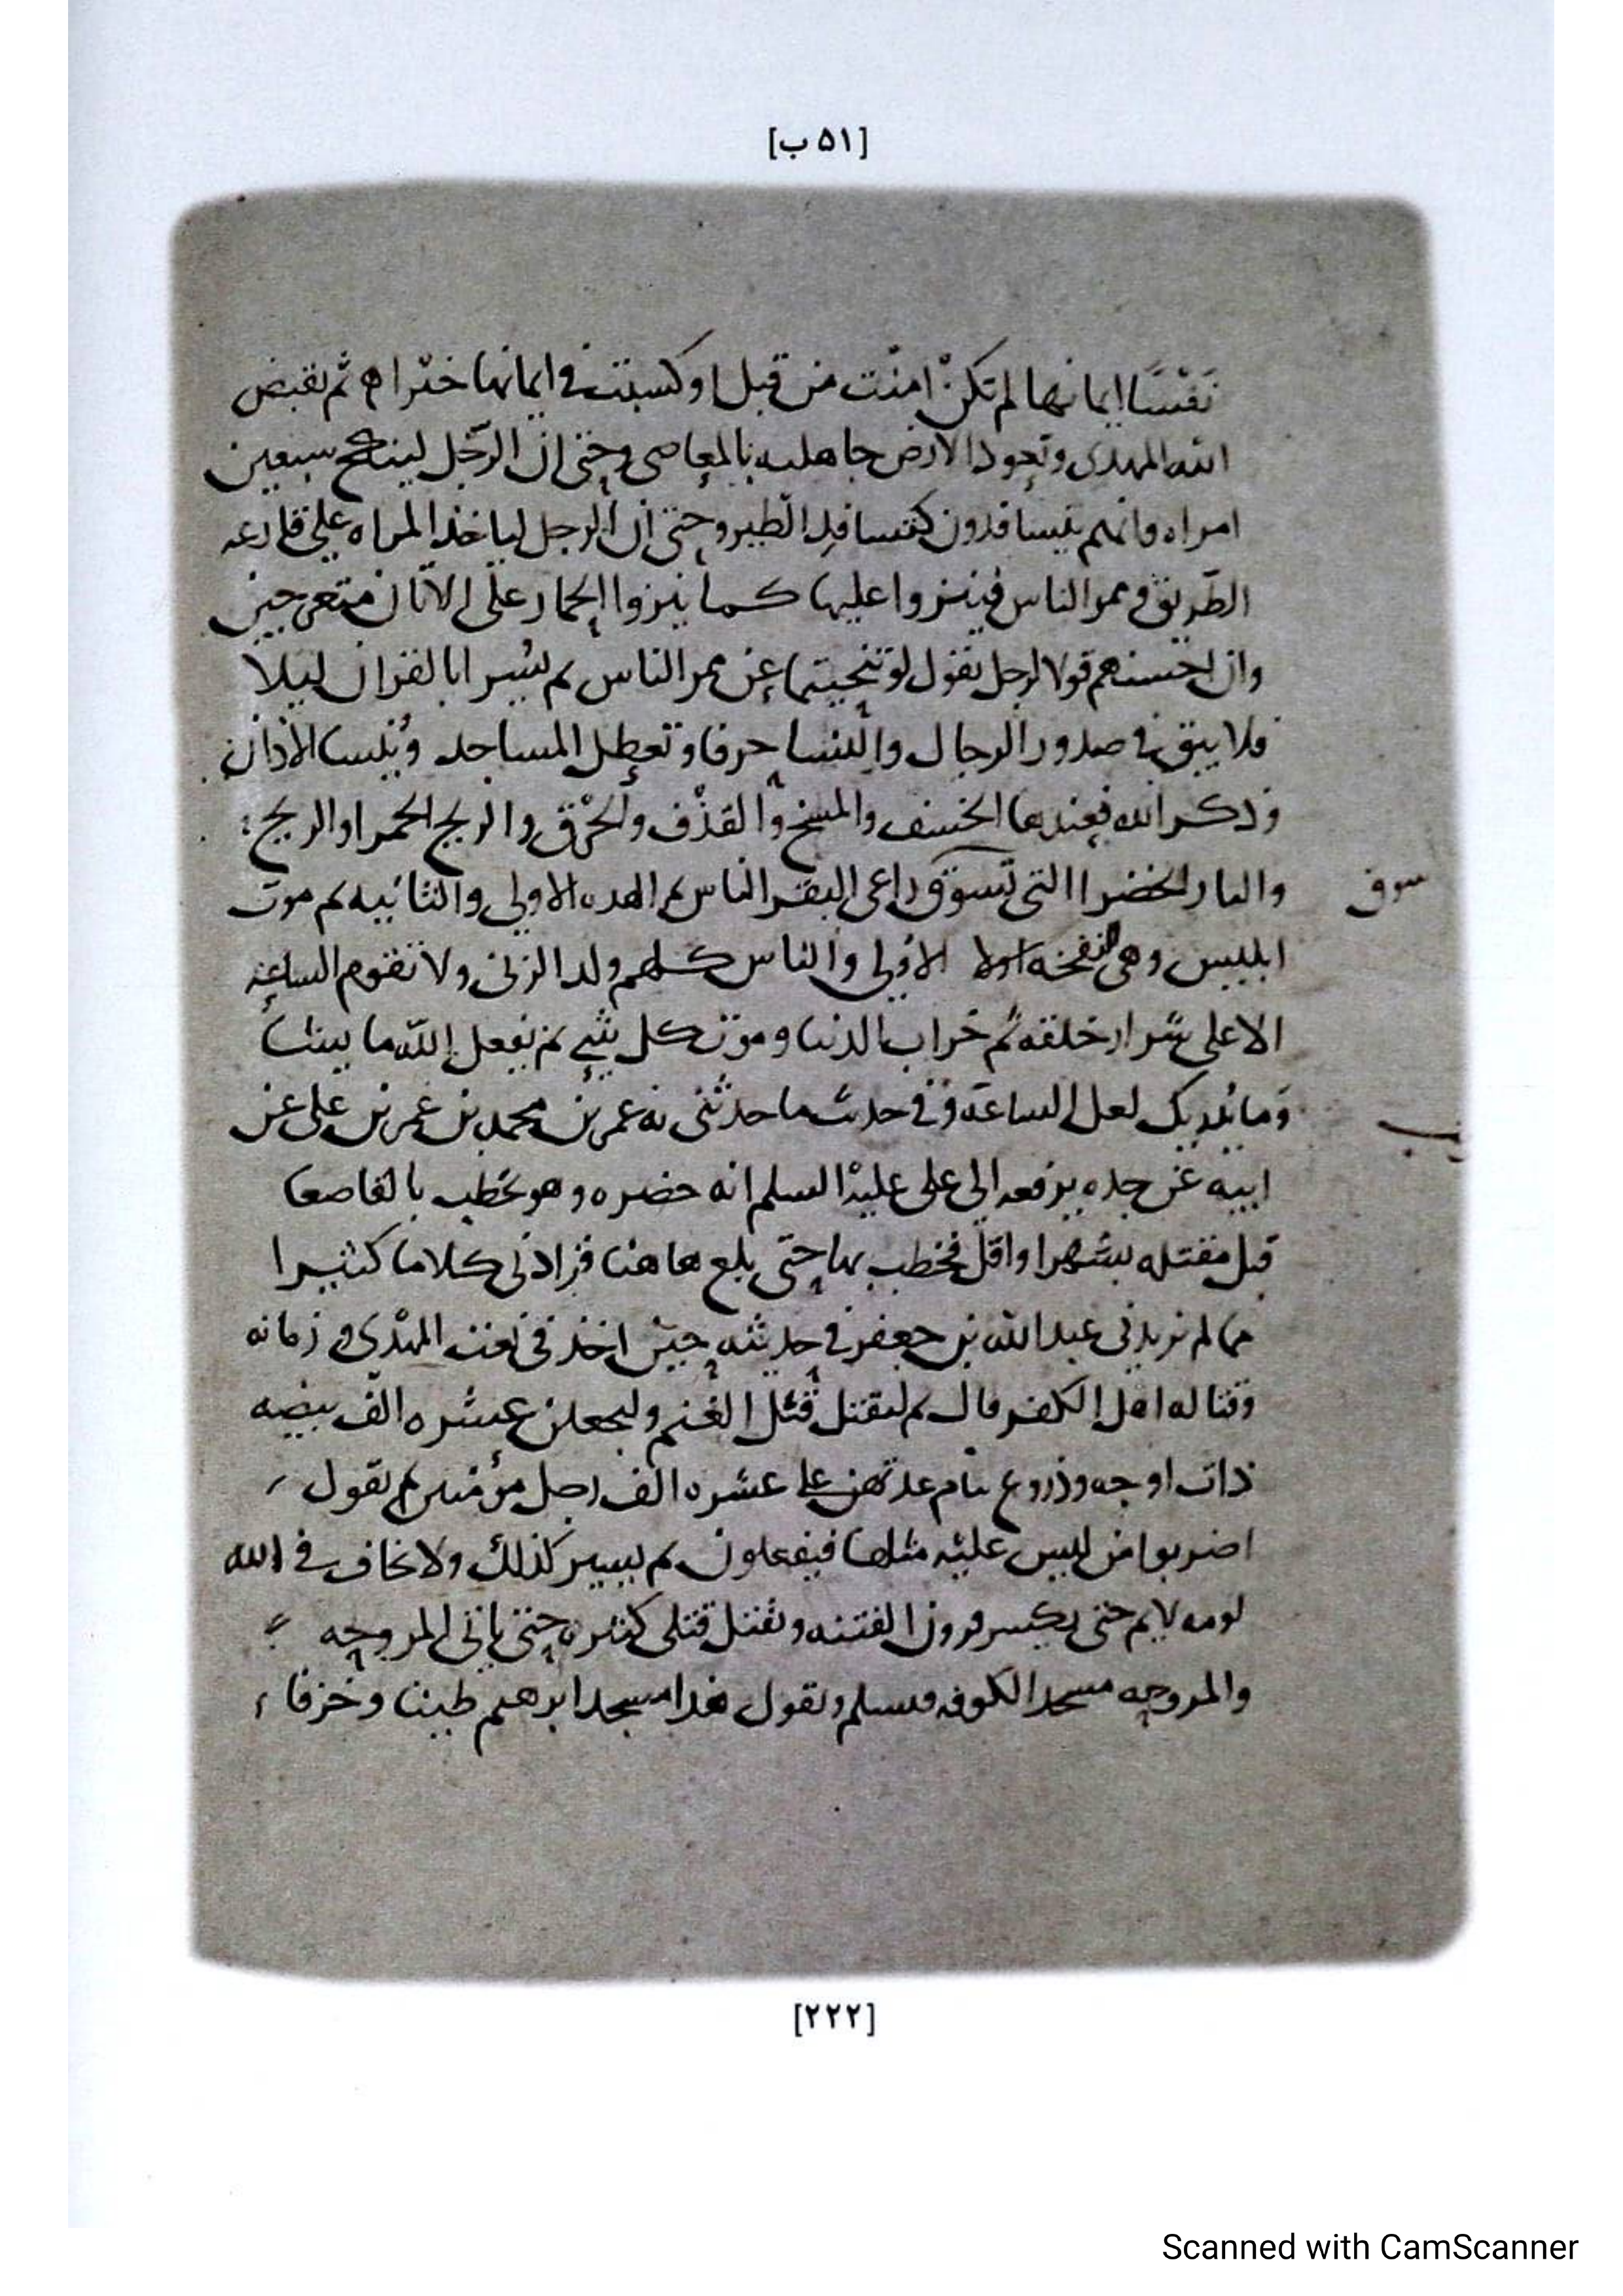 [٥١ ب]
نَفْسًا إيمانها لم تكنْ امنْت من قبل او كسبت في ايمانها خيْرا ه ثم يقبض
الله المهدى وتعود الارض جاهليه بالمعاصى وحتى ان الرّجل لينكح سبعين
امراه وانهم يتسافدون كتسافد الطير وحتى ان الرجل لياخذ المراه على قارعه
الطريق وممر الناس فينزوا عليها كما ينزوا الحمار على الاتان متعرجين
وان احسنهم قولا لرجل يقول لو تنحيتما عن ممر الناس ثم يسرا بالقران ليلا
فلا يبقى في صدور الرجال والنسا حرفا وتعطل المساجد وينسا الاذان
وذكر الله فعندها الخسف والمسخ والقذف والحرق والريح الحمرا والريح
والنار الخضرا التى تسوق راعى البقر الناس ثم الهده الاولى والثانيه ثم موت
سوق
ابليس وهي النفخه اولا الاولى والناس كلهم ولد الزنى ولا تقوم الساعه
الا على شرار خلقه ثم خراب الدنيا وموت كل شي ثم يفعل الله ما يشا
وما يدريك لعل الساعه وفي حديث ما حدثنى به عمر بن محمد بن عمر بن على عن
ابيه عن جده يرفعه الى على عليه السلم انه حضره وهو يخطب بالقاصعا
قبل مقتله بشهرا واقل فخطب بها حتى بلغ هاهنا فزادنى كلاما كثيرا
مما لم يزيدنى عبد الله بن جعفر في حديثه حين اخذ في نعت المهْدى وزمانه
وقتاله اهل الكفر قال ثم ليقتل قتل الغنم وليجعلن عشره الف بيضه
ذات اوجه وذروع تمام عدتهن على عشره الف رجل مؤمنين ثم يقول
اضربوا من ليس عليه مثلها فيفعلون ثم يسير كذلك ولا يخاف في الله
لومه لايم حتى يكسر قرون الفتنه ويقتل قتلى كثيره حتى ياتى المروحه
والمروحه مسجد الكوفه فيسلم ويقول هذا مسجد ابرهيم طينا وخزفا
[٢٢٢]
Scanned with CamScanner